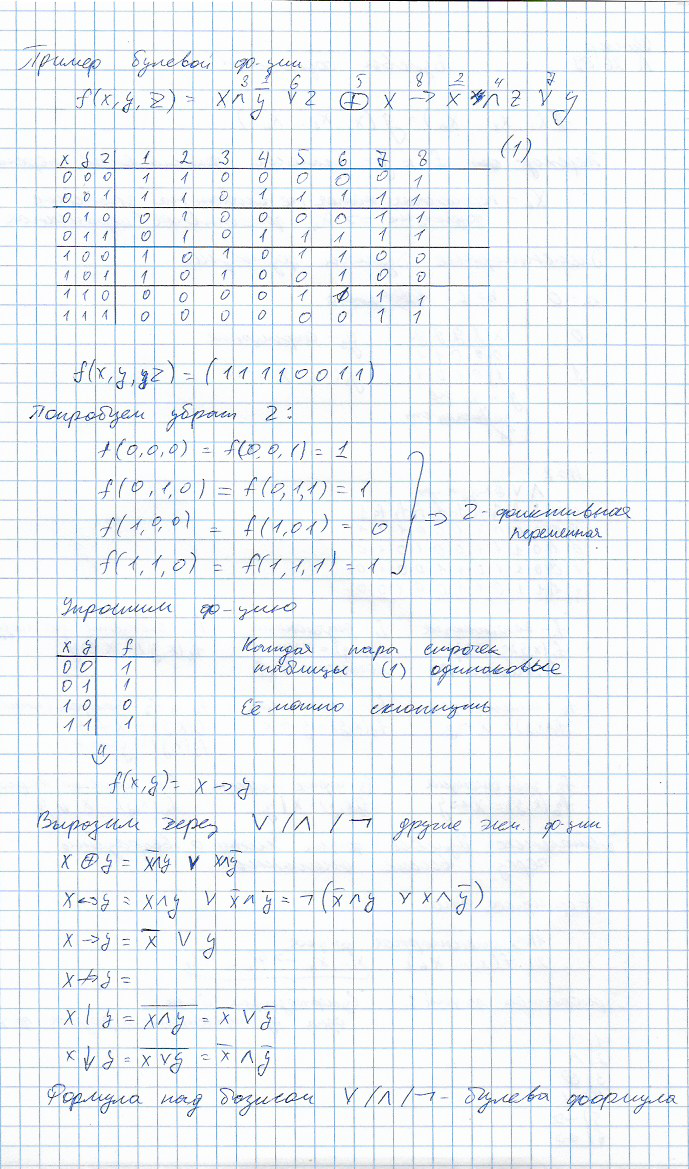 Пример булевой ф-ции
3 1 6 5 8 2 4 7
f(x, y, z) = x ∧ y̅ ∨ z ⊕ x → x̅ ∧ z ∨ y
(1)
x y z 1 2 3 4 5 6 7 8
0 0 0 1 1 0 0 0 0 0 1
0 0 1 1 1 0 1 1 1 1 1
0 1 0 0 1 0 0 0 0 1 1
0 1 1 0 1 0 1 1 1 1 1
1 0 0 1 0 1 0 1 1 0 0
1 0 1 1 0 1 0 0 1 0 0
1 1 0 0 0 0 0 1 1 1 1
1 1 1 0 0 0 0 0 0 1 1
f(x, y, z) = (1 1 1 1 0 0 1 1)
Попробуем убрать z:
f(0,0,0) = f(0,0,1) = 1
f(0,1,0) = f(0,1,1) = 1
f(1,0,0) = f(1,01) = 0
f(1,1,0) = f(1,1,1) = 1
⇒ z - фиктивная
переменная
Упростим ф-цию
x y f
0 0 1
0 1 1
1 0 0
1 1 1
Каждая пара строчек
таблицы (1) одинаковые
Её можно схлопнуть
⇓
f(x,y) = x → y
Выразим через ∨ / ∧ / ¬ другие эл ф-ции
x ⊕ y = x̅∧y ∨ x∧y̅
x ↔ y = x∧y ∨ x̅∧y̅ = ¬(x̅∧y ∨ x∧y̅)
x → y = x̅ ∨ y
x ↛ y =
x | y = x̅∧̅y̅ = x̅ ∨ y̅
x ↓ y = x̅∨̅y̅ = x̅ ∧ y̅
Формула над базисом ∨ / ∧ / ¬ - булева формула